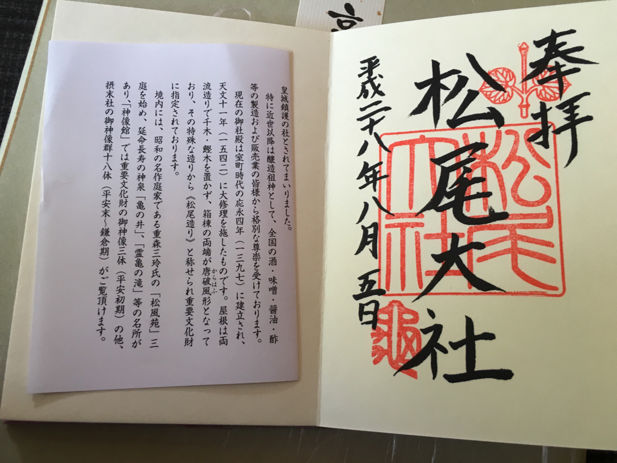 奉拝
松尾大社
平成二十八年八月五日
松尾大社
皇城鎮護の社とされてまいりました。
特に近世以降は醸造祖神として、全国の酒・味噌・醤油・酢
等の製造および販売業の皆様から格別な尊崇を受けております。
現在の御社殿は室町時代の応永四年（一三九七）に建立され、
天文十一年（一五四二）に大修理を施したものです。屋根は両
流造りで千木・鰹木を置かず、箱棟の両端が唐破風形となって
からはふ
おり、その特殊な造りから《松尾造り》と称せられ重要文化財
に指定されております。
境内には、昭和の名作庭家である重森三玲氏の「松風苑」三
庭を始め、延命長寿の神泉「亀の井」、「霊亀の滝」等の名所が
あり、「神像館」では重要文化財の御神像三体（平安初期）の他、
摂末社の御神像群十八体（平安末～鎌倉期）がご覧頂けます。